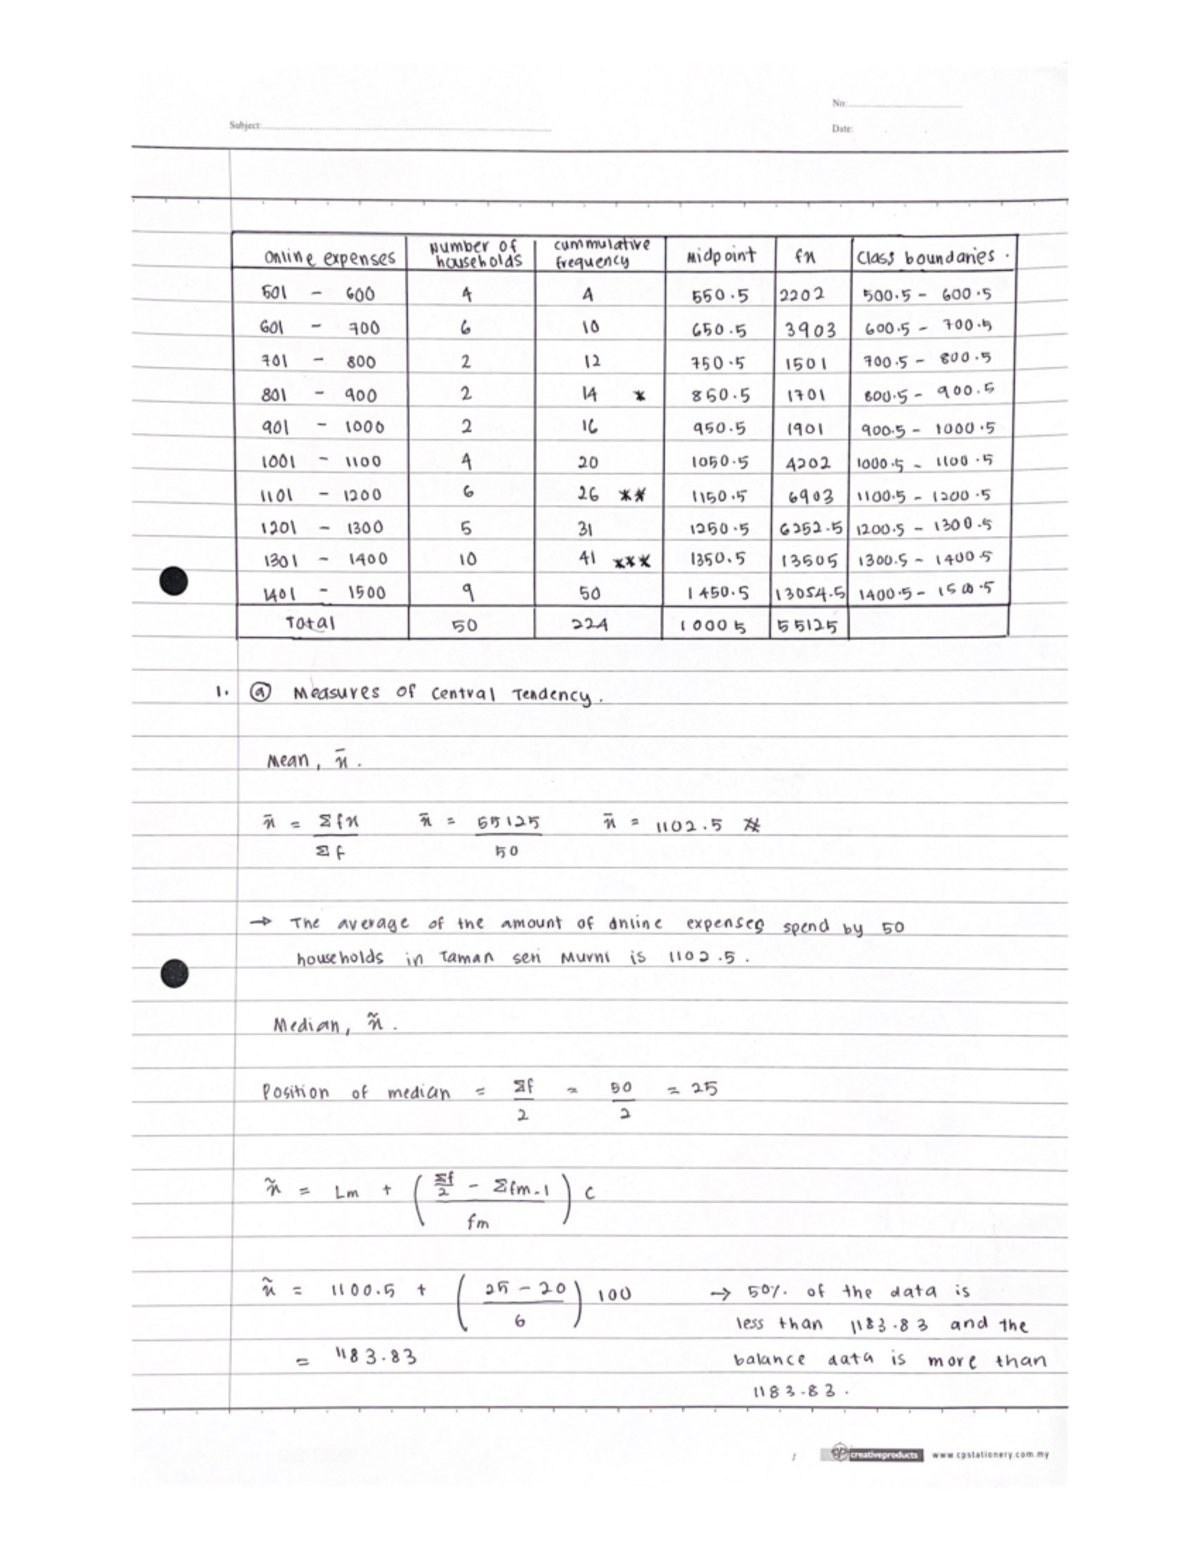 No:
Subject:
Date:
Online expenses | Number of households | cummulative frequency | Midpoint | fx | Class boundaries.
501 - 600 | 4 | 4 | 550.5 | 2202 | 500.5 - 600.5
601 - 700 | 6 | 10 | 650.5 | 3903 | 600.5 - 700.5
701 - 800 | 2 | 12 | 750.5 | 1501 | 700.5 - 800.5
801 - 900 | 2 | 14 * | 850.5 | 1701 | 800.5 - 900.5
901 - 1000 | 2 | 16 | 950.5 | 1901 | 900.5 - 1000.5
1001 - 1100 | 4 | 20 | 1050.5 | 4202 | 1000.5 - 1100.5
1101 - 1200 | 6 | 26 ** | 1150.5 | 6903 | 1100.5 - 1200.5
1201 - 1300 | 5 | 31 | 1250.5 | 6252.5 | 1200.5 - 1300.5
1301 - 1400 | 10 | 41 *** | 1350.5 | 13505 | 1300.5 - 1400.5
1401 - 1500 | 9 | 50 | 1450.5 | 13054.5 | 1400.5 - 1500.5
Total | 50 | 224 | 10005 | 55125
1. (a) Measures of Central Tendency.
Mean, x̄.
x̄ = Σfx / Σf x̄ = 55125 / 50 x̄ = 1102.5 #
→ The average of the amount of online expenses spend by 50
households in Taman seri Murni is 1102.5.
Median, x̃.
Position of median = Σf / 2 = 50 / 2 = 25
x̃ = Lm + ( (Σf/2 - Σfm-1) / fm ) C
x̃ = 1100.5 + ( (25 - 20) / 6 ) 100 → 50% of the data is
less than 1183.83 and the
= 1183.83 balance data is more than
1183.83.
1 cp creativeproducts www.cpstationery.com.my